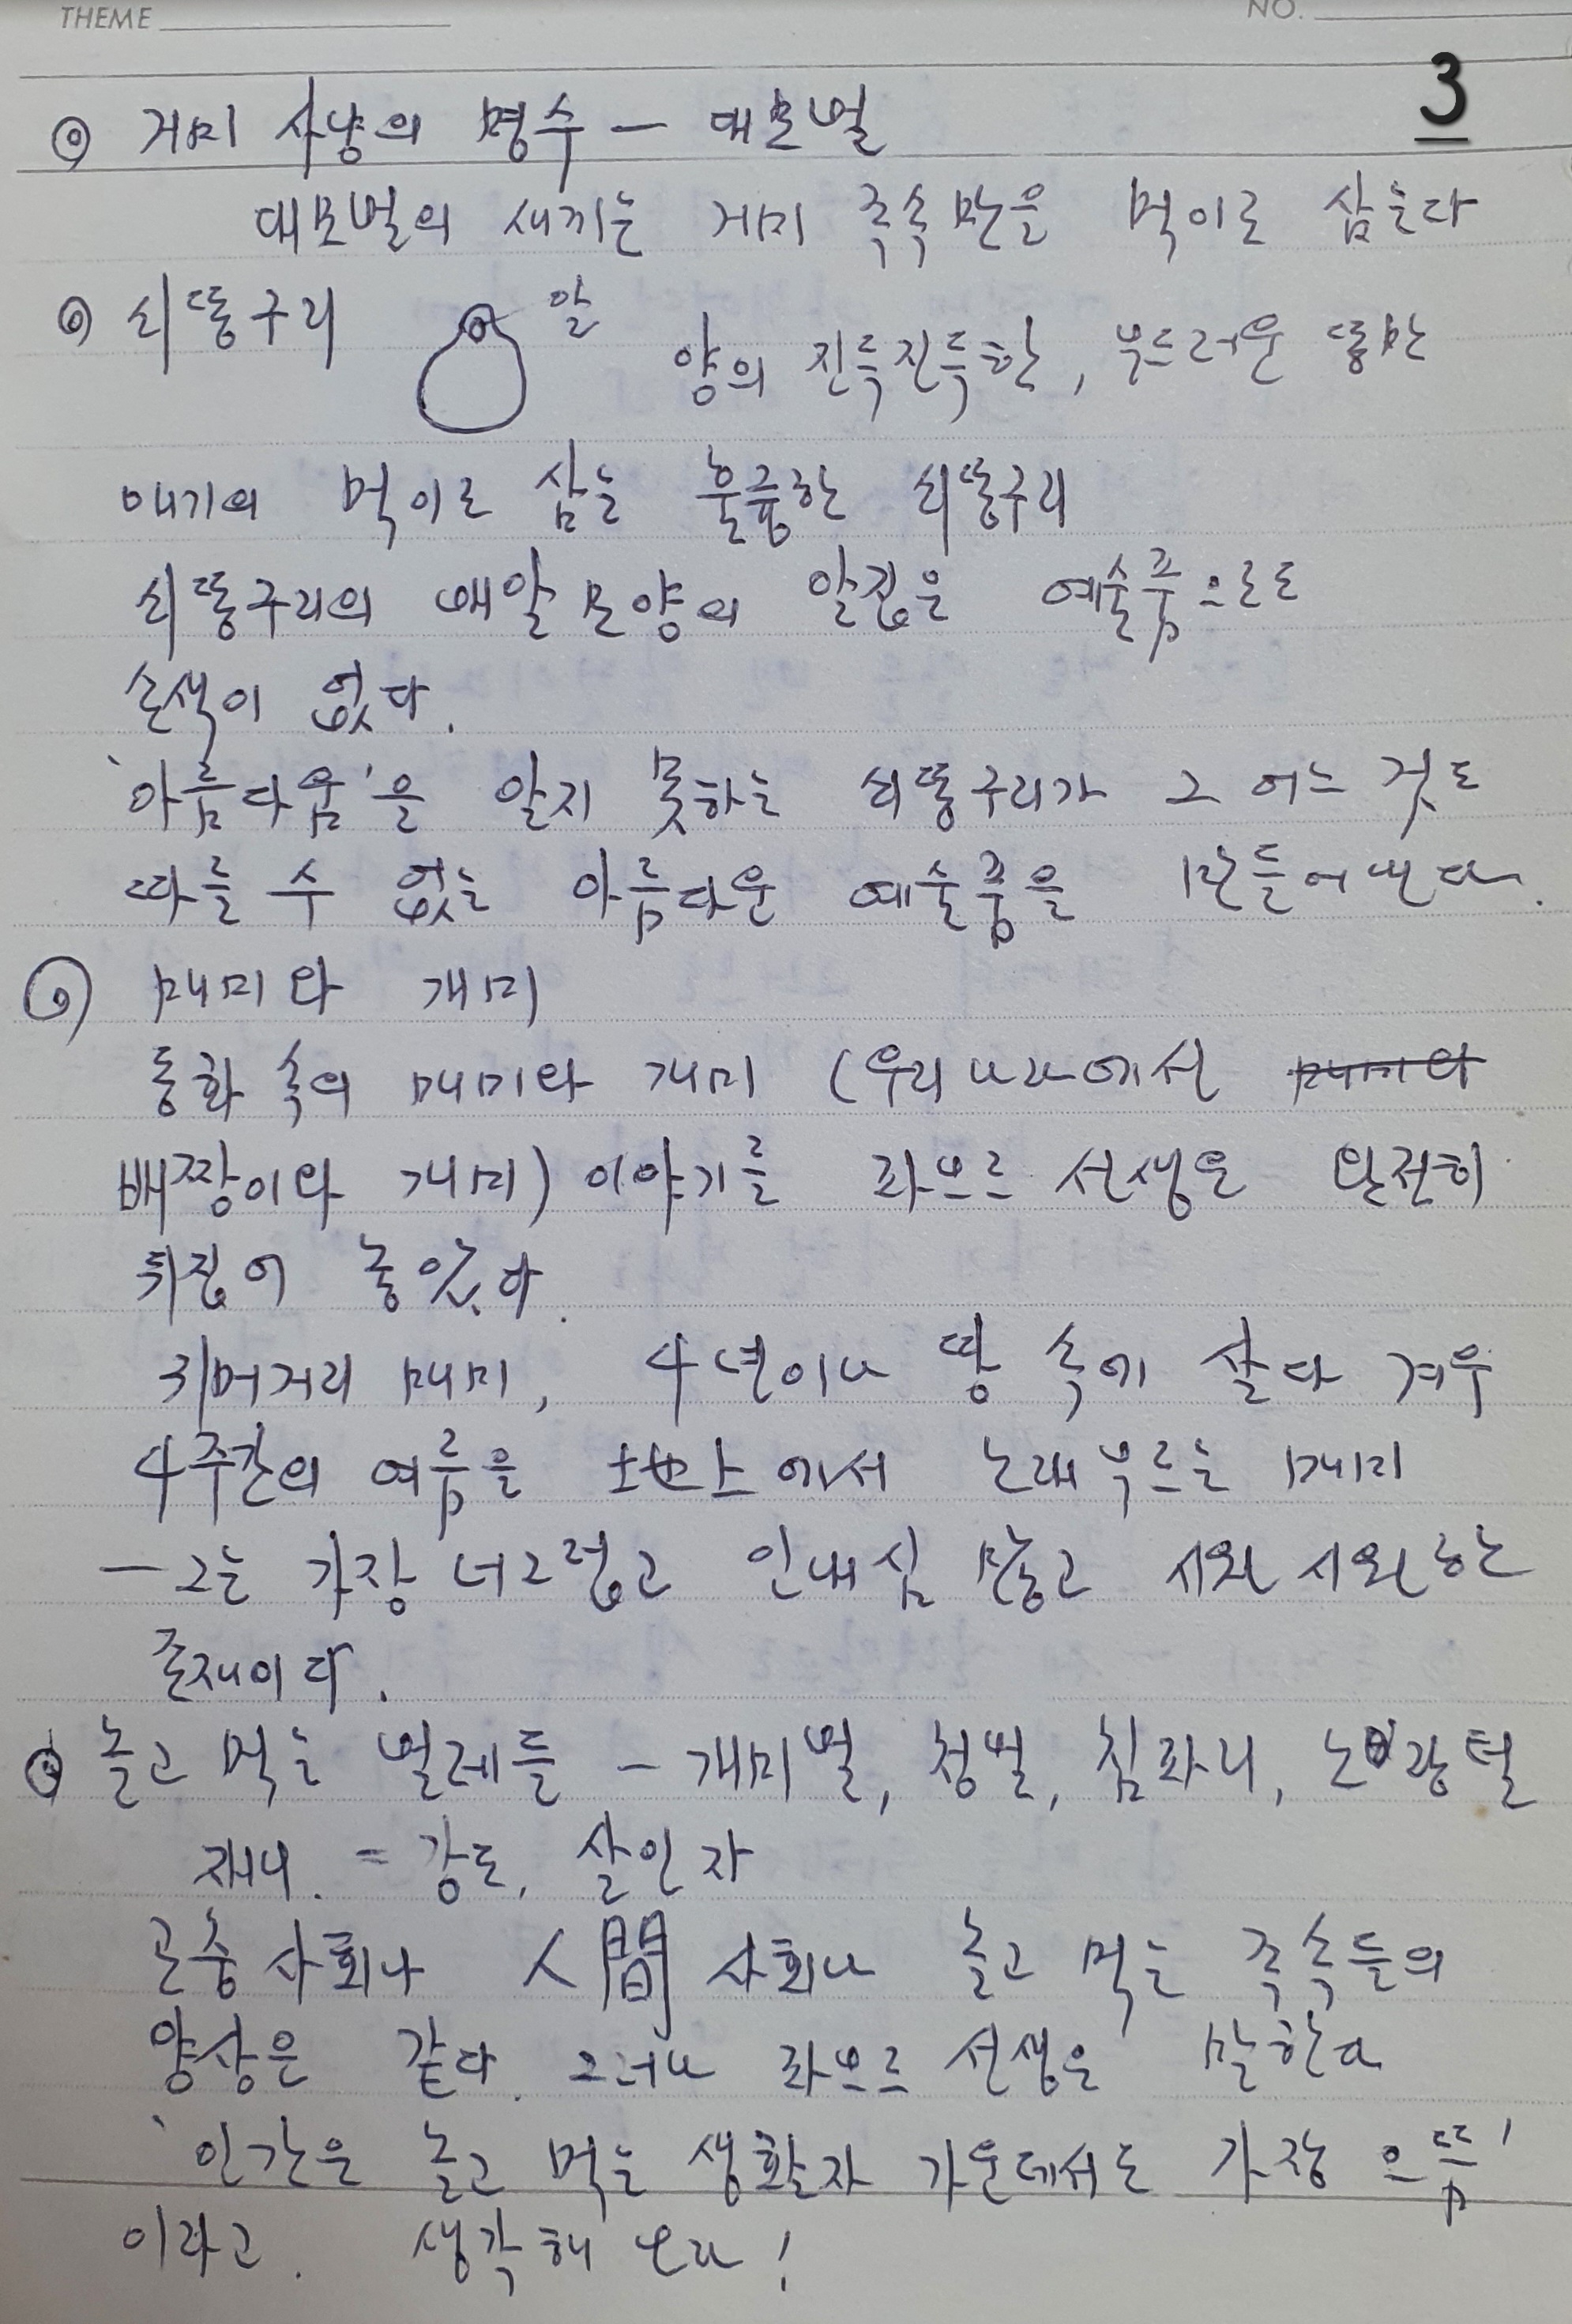 THEME
NO.
3
◎ 거미 사냥의 명수 - 대모벌
대모벌의 새끼는 거미 족속만을 먹이로 삼는다
◎ 쇠똥구리 알 양의 진득진득한, 부드러운 똥만
애기의 먹이로 삼는 훌륭한 쇠똥구리
쇠똥구리의 배알모양의 알집은 예술품으로도
손색이 없다.
'아름다움'을 알지 못하는 쇠똥구리가 그 어느 것도
따를 수 없는 아름다운 예술품을 만들어낸다.
◎ 매미와 개미
동화 속의 매미와 개미 (우리나라에선 매미와
배짱이와 개미) 이야기를 파브르 선생은 완전히
뒤집어 놓았다.
귀머거리 매미, 4년이나 땅 속에 살다 겨우
4주간의 여름을 土也上에서 노래부르는 매미
- 그는 가장 너그럽고 인내심 많고 시원시원하는
존재이다.
◎ 놀고 먹는 벌레들 - 개미벌, 청벌, 침파리, 노랑털
재니. = 강도, 살인자
곤충사회나 人間 사회나 놀고 먹는 족속들의
양상은 같다. 그러나 파브르 선생은 말한다
'인간은 놀고 먹는 생활자 가운데서도 가장 으뜸'
이라고. 생각해 보라!